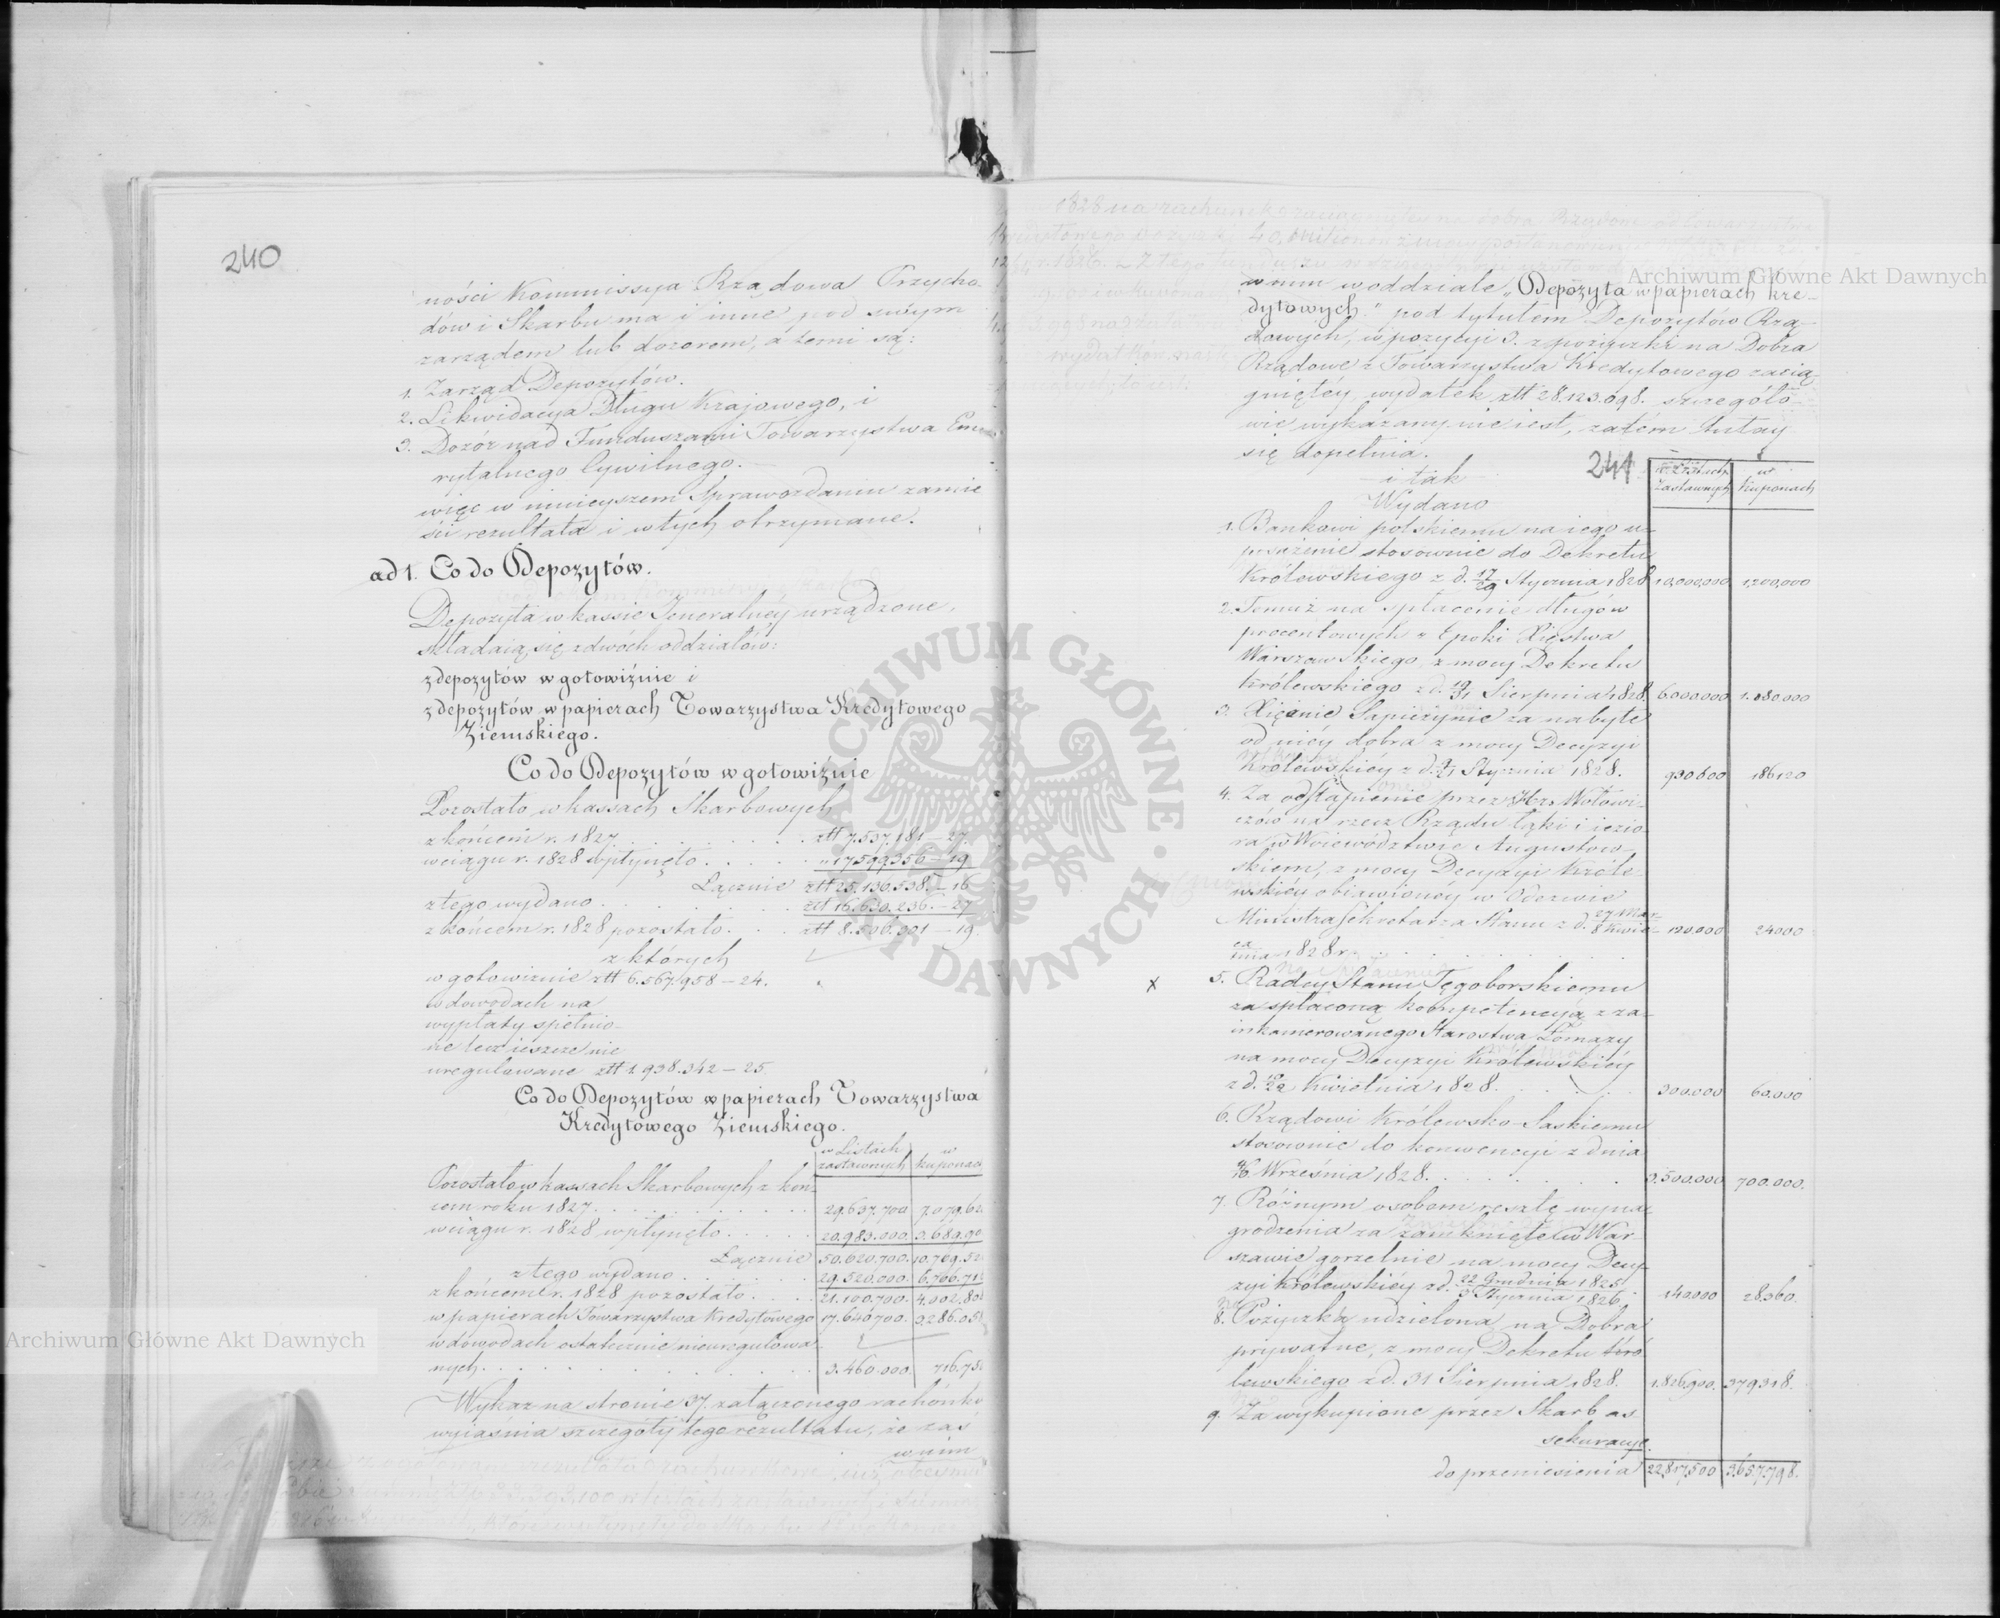 240
ności Kommissya Rządowa Przycho-
dów i Skarbu ma i inne pod swym
zarządem lub dozorem, a temi są:
1. Zarząd Depozytów.
2. Likwidacya Długu Krajowego, i
3. Dozór nad Funduszami Towarzystwa Eme-
rytalnego Cywilnego.
więc w ninieyszem Sprawozdaniu zamie
ści rezultata i w tych otrzymane.
ad 1. Co do Depozytów.
Depozyta w kassie Jeneralney urządzone,
składaią się z dwóch oddziałów:
z depozytów w gotowiźnie i
z depozytów w papierach Towarzystwa Kredytowego
Ziemskiego.
Co do Depozytów w gotowiznie
Pozostało w kassach Skarbowych
z końcem r. 1827 . . . . . złt 7.537.181 – 27.
w ciągu r. 1828 wpłynęło . . . . . „ 17599356 – 19
Łącznie złt 25.136.538. – 16
z tego wydano . . . . . złt 16.630.236. – 27
z końcem r. 1828 pozostało . . . złt 8.506.301 – 19.
z których
w gotowiznie złt 6.567.958 – 24.
w dowodach na
wypłaty spełnio-
ne lecz ieszcze nie
uregulowane złt 1.938.342 – 25
Co do Depozytów w papierach Towarzystwa
Kredytowego Ziemskiego.
w Listach zastawnych | w kuponach
Pozostało w kassach Skarbowych z koń-
cem roku 1827 . . . . . 29.637.700 7.079.62
w ciągu r. 1828 wpłynęło . . . . . 20.983.000 3.689.90
Łącznie 50.620.700. 10.769.52
z tego wydano . . . . . 29.520.000. 6.766.71
z końcem r. 1828 pozostało . . . . 21.100.700. 4.002.80
w papierach Towarzystwa Kredytowego 17.640700. 3.286.05
w dowodach ostatecznie nieuregulowa-
nych . . . . . 3.460.000. 716.75
Wykaz na stronie 37. załączonego rachónku
wyiaśnia szczegóły tego rezultatu, że zaś
w nim
w nim w oddziale „Depozyta w papierach kre-
dytowych." pod tytułem Depozytów Rzą-
dowych, w pozycyi 3. z pożyczki na Dobra
Rządowe z Towarzystwa Kredytowego zacią-
gniętéy, wydatek złt 28.123.098. szczegóło
wie wykazany nie iest, zatém tutay
się dopełnia.
241
w Listach Zastawnych | w Kuponach
i tak
Wydano
1. Bankowi polskiemu na iego u-
posażenie stosownie do Dekretu
Królewskiego z d. 17/29 Stycznia 1828 10,000,000 1,200,000
2. Temuż na spłacenie długów
procentowych z Epoki Xięstwa
Warszawskiego, z mocy Dekretu
Królewskiego z d. 19/31 Sierpnia 1828. 6.000.000 1.080.000
3. Xiężnie Sapieżynie za nabyte
od niéy dobra z mocy Decyzyi
Królewskiéy z d. Stycznia 1828. 930.600 186120
4. Za odstąpienie przez Hrs Wołowi-
czów na rzecz Rządu łąki i iezio-
ra w Woiewództwie Augustow-
skiem, z mocy Decyzyi Króle
wskiéy obiawionéy w Odezwie
Ministra Sekretarza Stanu z d. 27 Mar-ca / 8 Kwie-tnia 1828 r. 120.000 24000
x 5. Radcy Stanu Tęgoborskiemu
za spłaconą kompetencyą z za-
inkamerowanego Starostwa Łomazy
na mocy Decyzyi Królewskiéy
z d. 10/22 Kwietnia 1828. . . . . 300.000 60.000
6. Rządowi Królewsko-Saskiemu
stosownie do konwencyi z dnia
4/16 Września 1828. . . . . 3,500.000 700.000.
7. Różnym osobom resztę wyna-
grodzenia za zamknięte w War-
szawie gorzelnie na mocy Decy-
zyi Królewskiéy z d. 22 Grudnia 1825 / 3 Stycznia 1826. 140.000 28.360.
8. Pożyczka udzielona na Dobra
prywatne, z mocy Dekretu Kró-
lewskiego z d. 31 Sierpnia 1828. 1.826.900. 379.318.
9. Za wykupione przez Skarb as-
sekuracye.
do przeniesienia 22,817,500 3.657.798.
Archiwum Główne Akt Dawnych
Archiwum Główne Akt Dawnych
ARCHIWUM GŁÓWNE AKT DAWNYCH